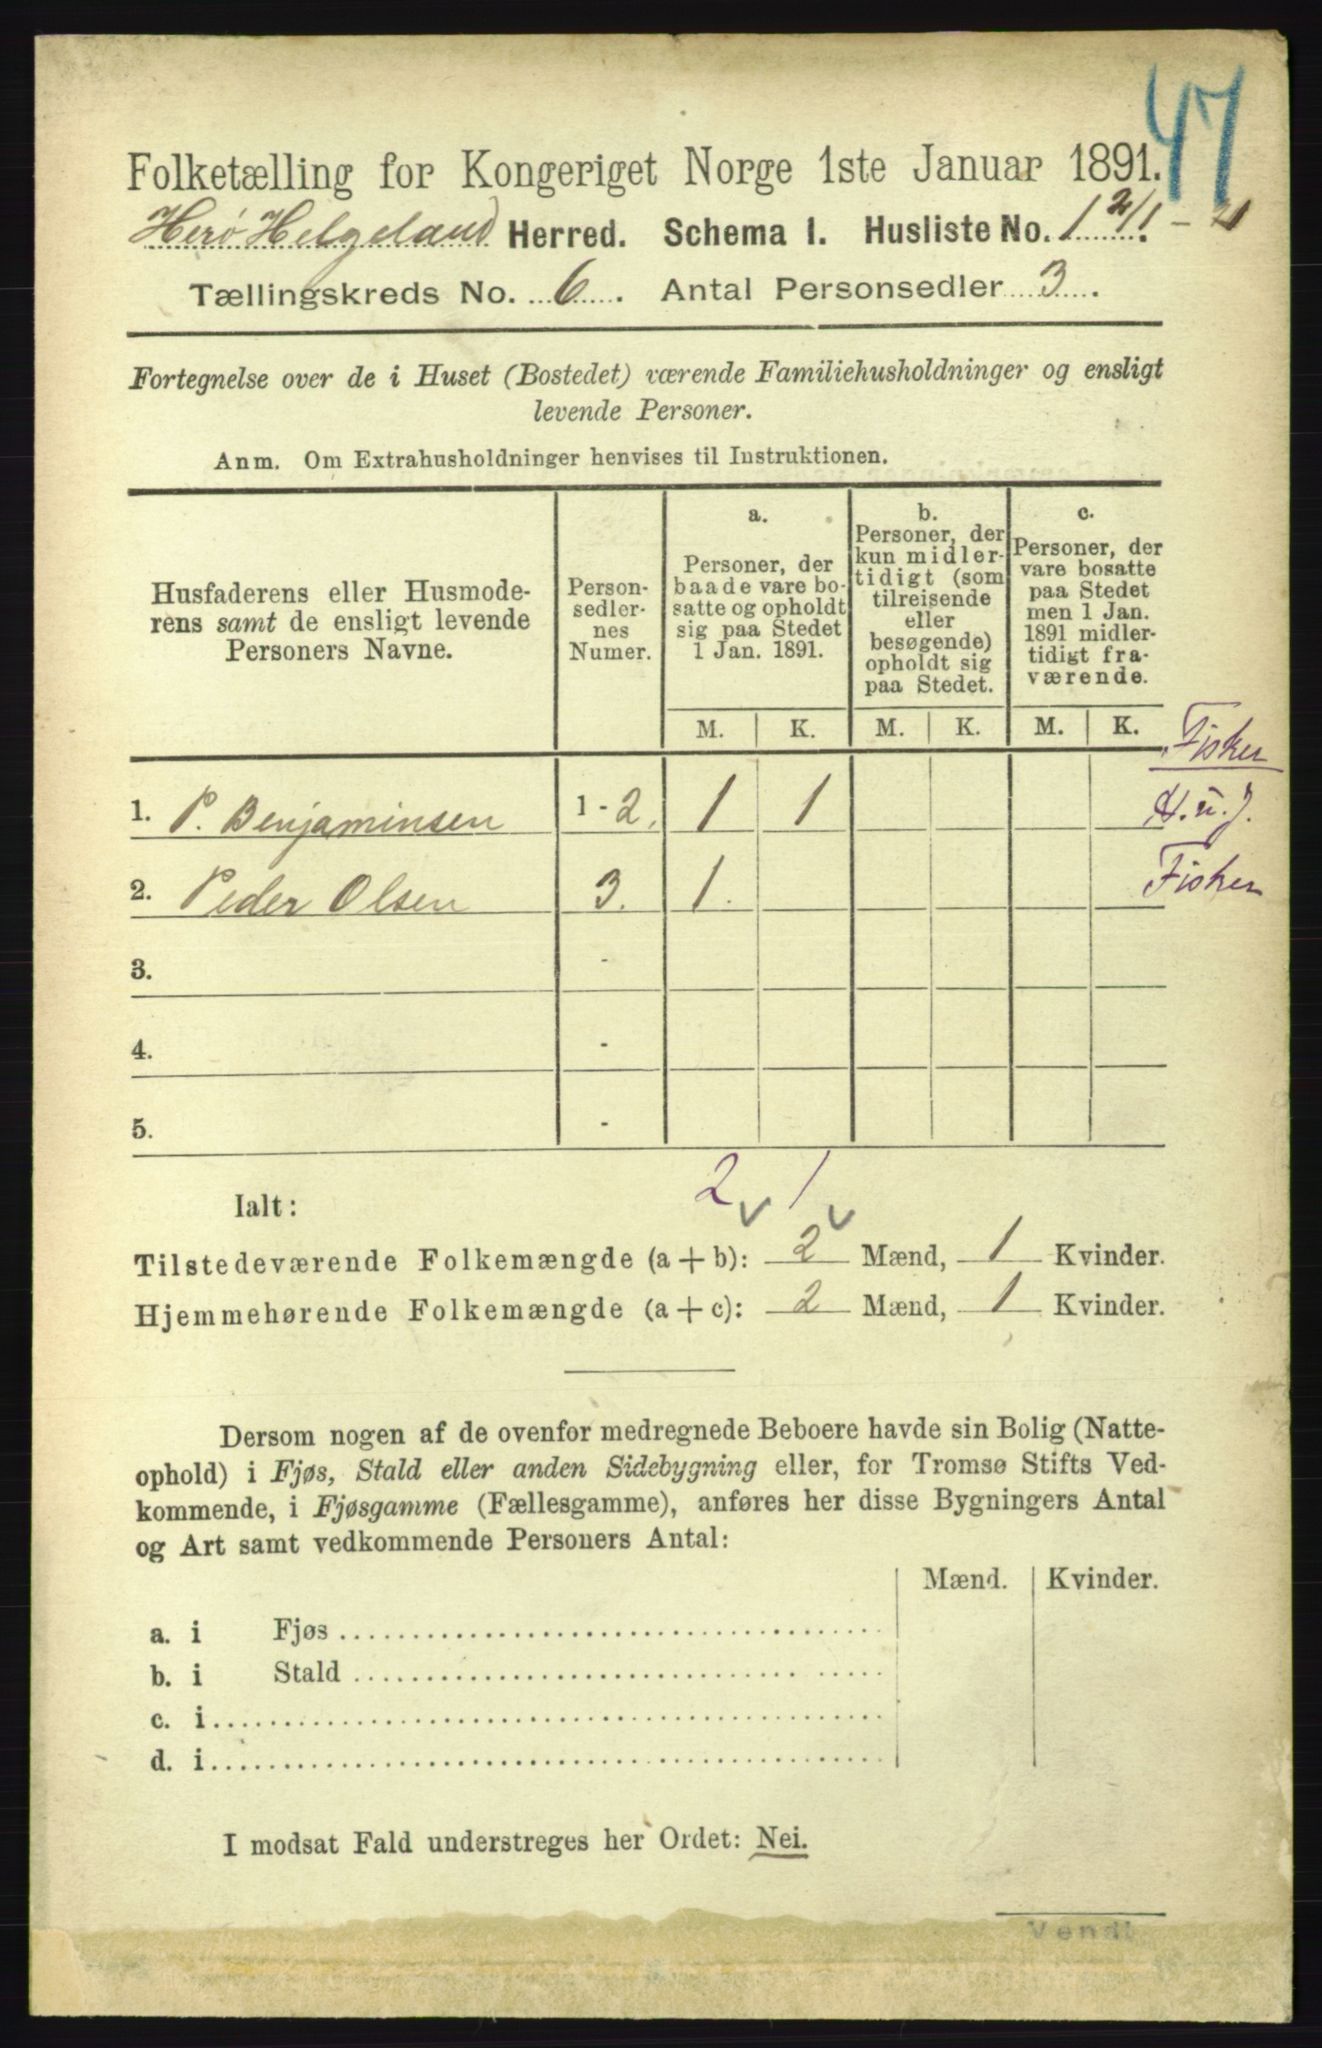 47
Folketælling for Kongeriget Norge 1ste Januar 1891.
Herø Helgeland Herred. Schema 1. Husliste No. 1
Tællingskreds No. 6. Antal Personsedler 3.
Fortegnelse over de i Huset (Bostedet) værende Familiehusholdninger og ensligt
levende Personer.
Anm. Om Extrahusholdninger henvises til Instruktionen.
Husfaderens eller Husmode-
rens samt de ensligt levende
Personers Navne.
Person-
sedler-
nes
Numer.
a.
Personer, der
baade vare bo-
satte og opholdt
sig paa Stedet
1 Jan. 1891.
b.
Personer, der
kun midler-
tidigt (som
tilreisende
eller
besøgende)
opholdt sig
paa Stedet.
c.
Personer, der
vare bosatte
paa Stedet
men 1 Jan.
1891 midler-
tidigt fra-
værende.
M. K. M. K. M. K.
Fisker
1. P. Benjaminsen 1 - 2. 1 1
2. Peder Olsen 3. 1. Fisker
3. -
4. -
5. -
2 1
Ialt:
Tilstedeværende Folkemængde (a + b): 2 Mænd, 1 Kvinder.
Hjemmehørende Folkemængde (a + c): 2 Mænd, 1 Kvinder.
Dersom nogen af de ovenfor medregnede Beboere havde sin Bolig (Natte-
ophold) i Fjøs, Stald eller anden Sidebygning eller, for Tromsø Stifts Ved-
kommende, i Fjøsgamme (Fællesgamme), anføres her disse Bygningers Antal
og Art samt vedkommende Personers Antal:
Mænd. Kvinder.
a. i Fjøs
b. i Stald
c. i
d. i
I modsat Fald understreges her Ordet: Nei.
Vendt